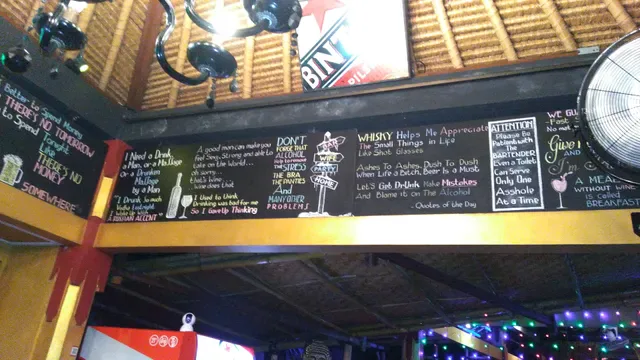 BIN
PIL
Better to Spend Money
THERE'S NO TOMORROW
to Spend
Tonight
Like
THERE'S
NO
MONEY
SOMEWHERE
I Need a Drink,
A Man, or a Massage
Or a Drunken
Massage
by a Man
"I Drank So much
Vodka Last night
I Woke Up With
A RUSSIAN ACCENT"
A good man can make you
Feel Sexy, Strong and able to
Take on the World..
oh sorry...
that's Wine..
Wine does that
I Used to think
Drinking was bad for me
So I Gave Up Thinking
DON'T
FORGET THAT
ALCOHOL
THE STRESS
THE BRA
THE PANTIES
And
MANY OTHER
PROBLEMS
WIFE
PARTY
HOME
WHISKY Helps Me Appreciate
The Small Things in Life
Like Shot Glasses
Ashes To Ashes, Dush To Dush
When Life a Bitch, Beer Is a Must
Let's Get Drunk Make Mistakes
And Blame it on The Alcohol
- Quotes of the Day
ATTENTION
Please Be
Patient With
The
BARTENDER
Even a Toilet
Can Serve
Only One
Asshole
At a Time
WE
Fast
No mat
Give
A MEAL
WITHOUT WINE
is Called
BREAKFAST